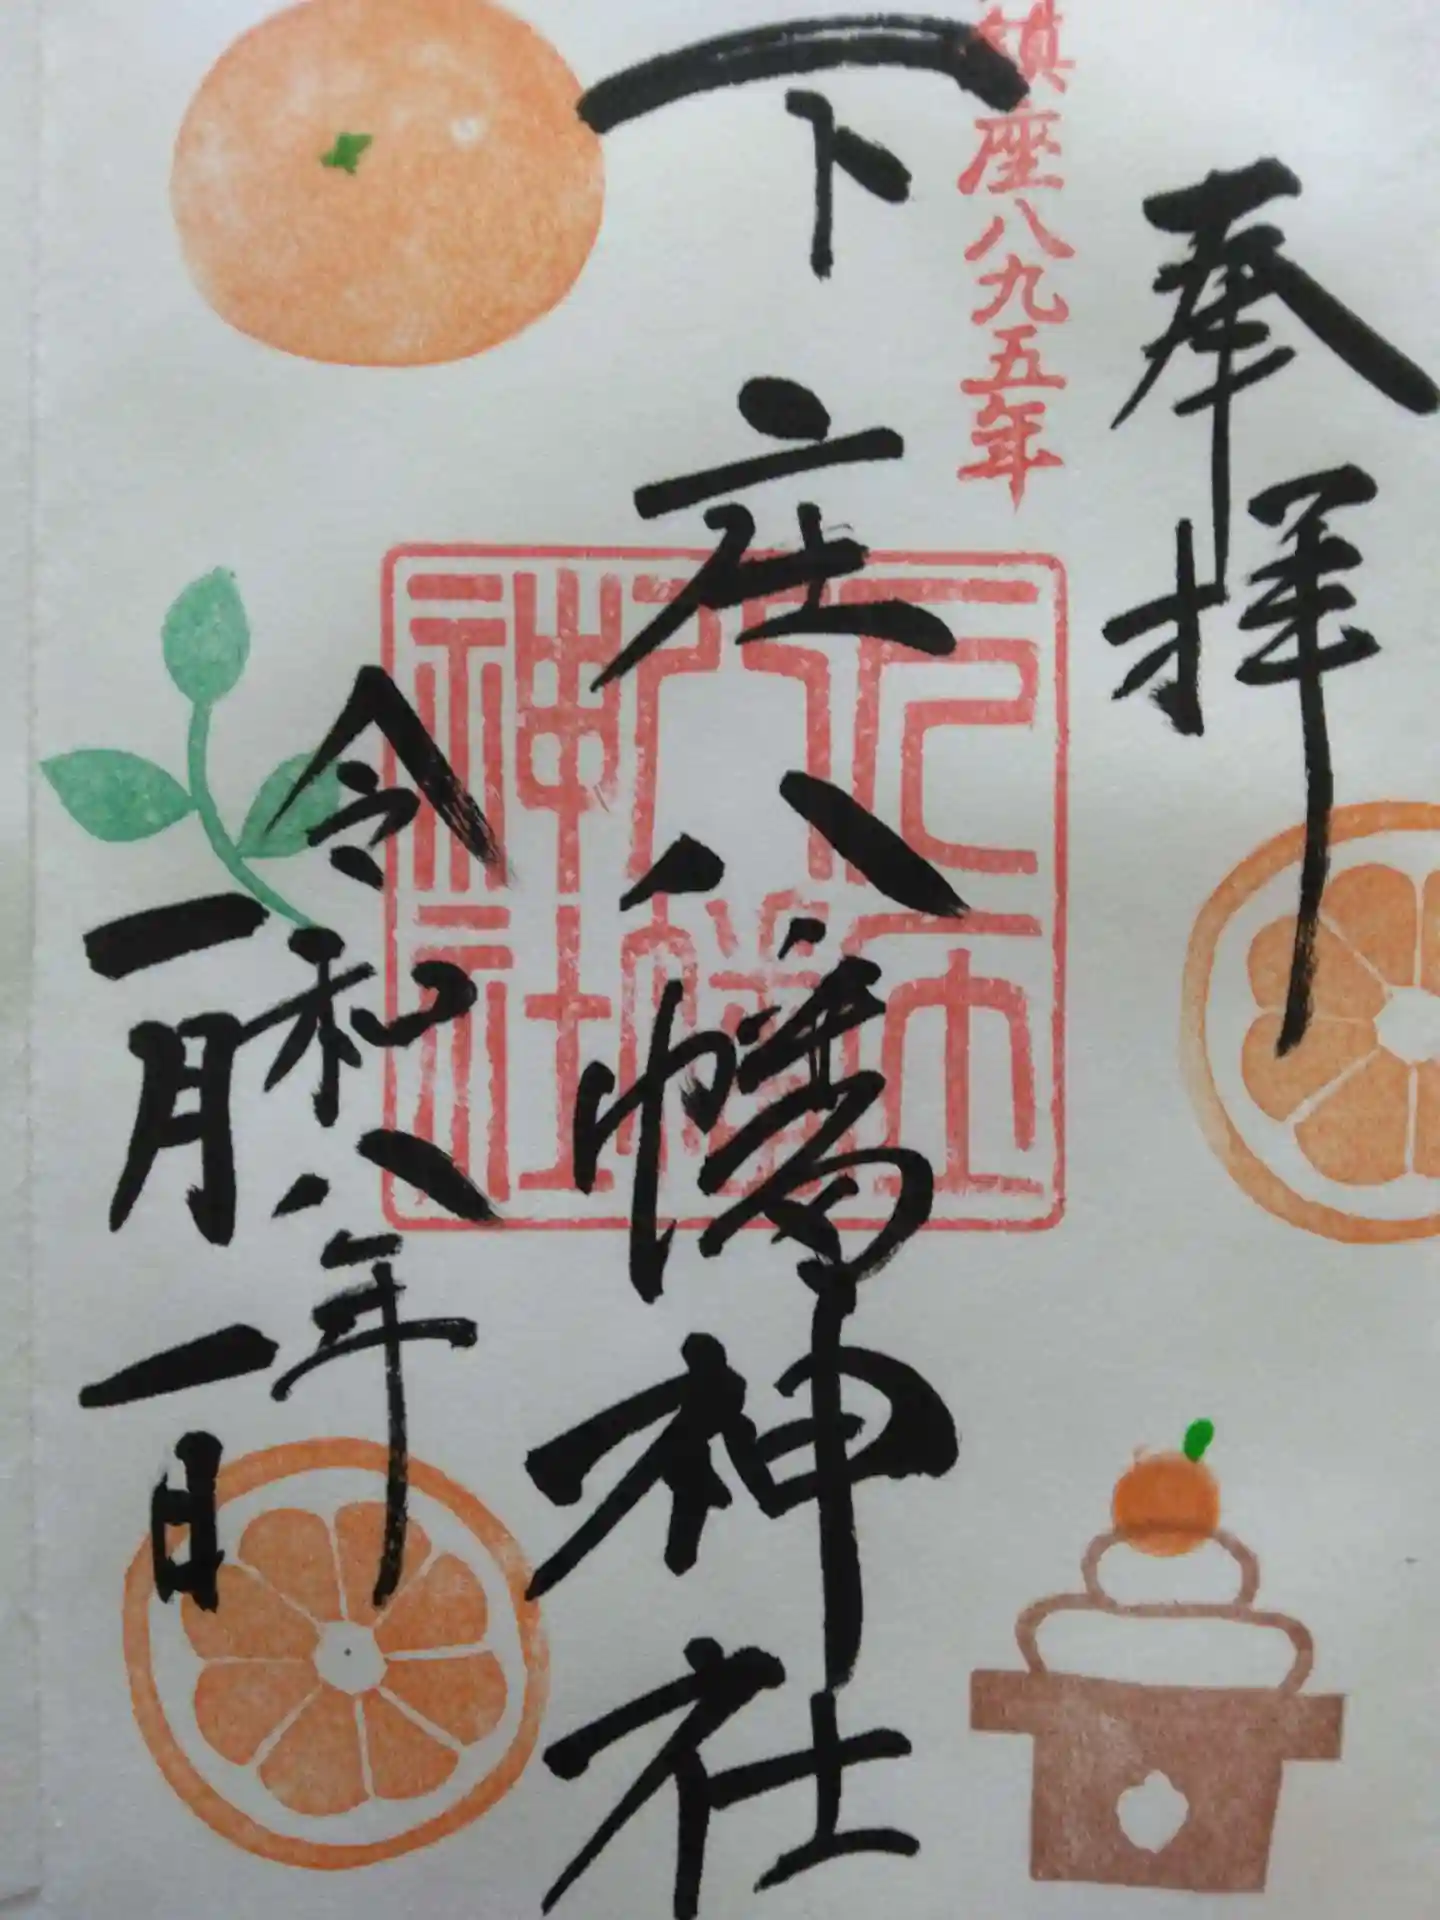 奉拝
鎮座八九五年
下庄八幡神社
下庄八幡神社
令和八年
一月一日